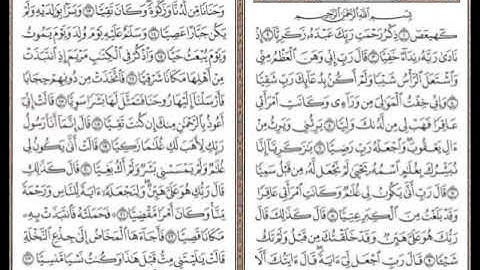 بِسْمِ اللَّهِ الرَّحْمَٰنِ الرَّحِيمِ
كٓهيعٓصٓ ۝١ ذِكْرُ رَحْمَتِ رَبِّكَ عَبْدَهُۥ زَكَرِيَّآ ۝٢ إِذْ
نَادَىٰ رَبَّهُۥ نِدَآءً خَفِيًّا ۝٣ قَالَ رَبِّ إِنِّى وَهَنَ ٱلْعَظْمُ مِنِّى
وَٱشْتَعَلَ ٱلرَّأْسُ شَيْبًا وَلَمْ أَكُنۢ بِدُعَآئِكَ رَبِّ شَقِيًّا ۝٤
وَإِنِّى خِفْتُ ٱلْمَوَٰلِىَ مِن وَرَآءِى وَكَانَتِ ٱمْرَأَتِى
عَاقِرًا فَهَبْ لِى مِن لَّدُنكَ وَلِيًّا ۝٥ يَرِثُنِى وَيَرِثُ مِنْ
ءَالِ يَعْقُوبَ وَٱجْعَلْهُ رَبِّ رَضِيًّا ۝٦ يَٰزَكَرِيَّآ إِنَّا
نُبَشِّرُكَ بِغُلَٰمٍ ٱسْمُهُۥ يَحْيَىٰ لَمْ نَجْعَل لَّهُۥ مِن قَبْلُ سَمِيًّا ۝٧
قَالَ رَبِّ أَنَّىٰ يَكُونُ لِى غُلَٰمٌ وَكَانَتِ ٱمْرَأَتِى عَاقِرًا
وَقَدْ بَلَغْتُ مِنَ ٱلْكِبَرِ عِتِيًّا ۝٨ قَالَ كَذَٰلِكَ قَالَ
رَبُّكَ هُوَ عَلَىَّ هَيِّنٌ وَقَدْ خَلَقْتُكَ مِن قَبْلُ وَلَمْ تَكُ
شَيْـًٔا ۝٩ قَالَ رَبِّ ٱجْعَل لِّىٓ ءَايَةً قَالَ ءَايَتُكَ أَلَّا
وَحَنَانًا مِّن لَّدُنَّا وَزَكَوٰةً وَكَانَ تَقِيًّا ۝١٣ وَبَرًّۢا بِوَٰلِدَيْهِ وَلَمْ
يَكُن جَبَّارًا عَصِيًّا ۝١٤ وَسَلَٰمٌ عَلَيْهِ يَوْمَ وُلِدَ وَيَوْمَ يَمُوتُ
وَيَوْمَ يُبْعَثُ حَيًّا ۝١٥ وَٱذْكُرْ فِى ٱلْكِتَٰبِ مَرْيَمَ إِذِ ٱنتَبَذَتْ
مِنْ أَهْلِهَا مَكَانًا شَرْقِيًّا ۝١٦ فَٱتَّخَذَتْ مِن دُونِهِمْ حِجَابًا
فَأَرْسَلْنَآ إِلَيْهَا رُوحَنَا فَتَمَثَّلَ لَهَا بَشَرًا سَوِيًّا ۝١٧ قَالَتْ إِنِّىٓ
أَعُوذُ بِٱلرَّحْمَٰنِ مِنكَ إِن كُنتَ تَقِيًّا ۝١٨ قَالَ إِنَّمَآ أَنَا۠ رَسُولُ
رَبِّكِ لِأَهَبَ لَكِ غُلَٰمًا زَكِيًّا ۝١٩ قَالَتْ أَنَّىٰ يَكُونُ لِى
غُلَٰمٌ وَلَمْ يَمْسَسْنِى بَشَرٌ وَلَمْ أَكُ بَغِيًّا ۝٢٠ قَالَ كَذَٰلِكِ
قَالَ رَبُّكِ هُوَ عَلَىَّ هَيِّنٌ وَلِنَجْعَلَهُۥٓ ءَايَةً لِّلنَّاسِ وَرَحْمَةً
مِّنَّا وَكَانَ أَمْرًا مَّقْضِيًّا ۝٢١ فَحَمَلَتْهُ فَٱنتَبَذَتْ بِهِۦ
مَكَانًا قَصِيًّا ۝٢٢ فَأَجَآءَهَا ٱلْمَخَاضُ إِلَىٰ جِذْعِ ٱلنَّخْلَةِ
قَالَتْ يَٰلَيْتَنِى مِتُّ قَبْلَ هَٰذَا وَكُنتُ نَسْيًا مَّنسِيًّا ۝٢٣